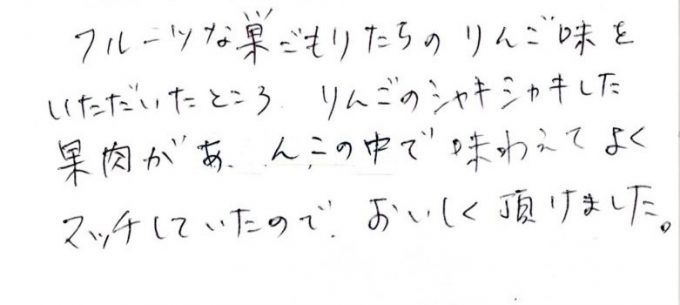 フルーツな巣ごもりたちのりんご味を
いただいたところ、りんごのシャキシャキした
果肉があんこの中で味わえてよく
マッチしていたので、おいしく頂けました。